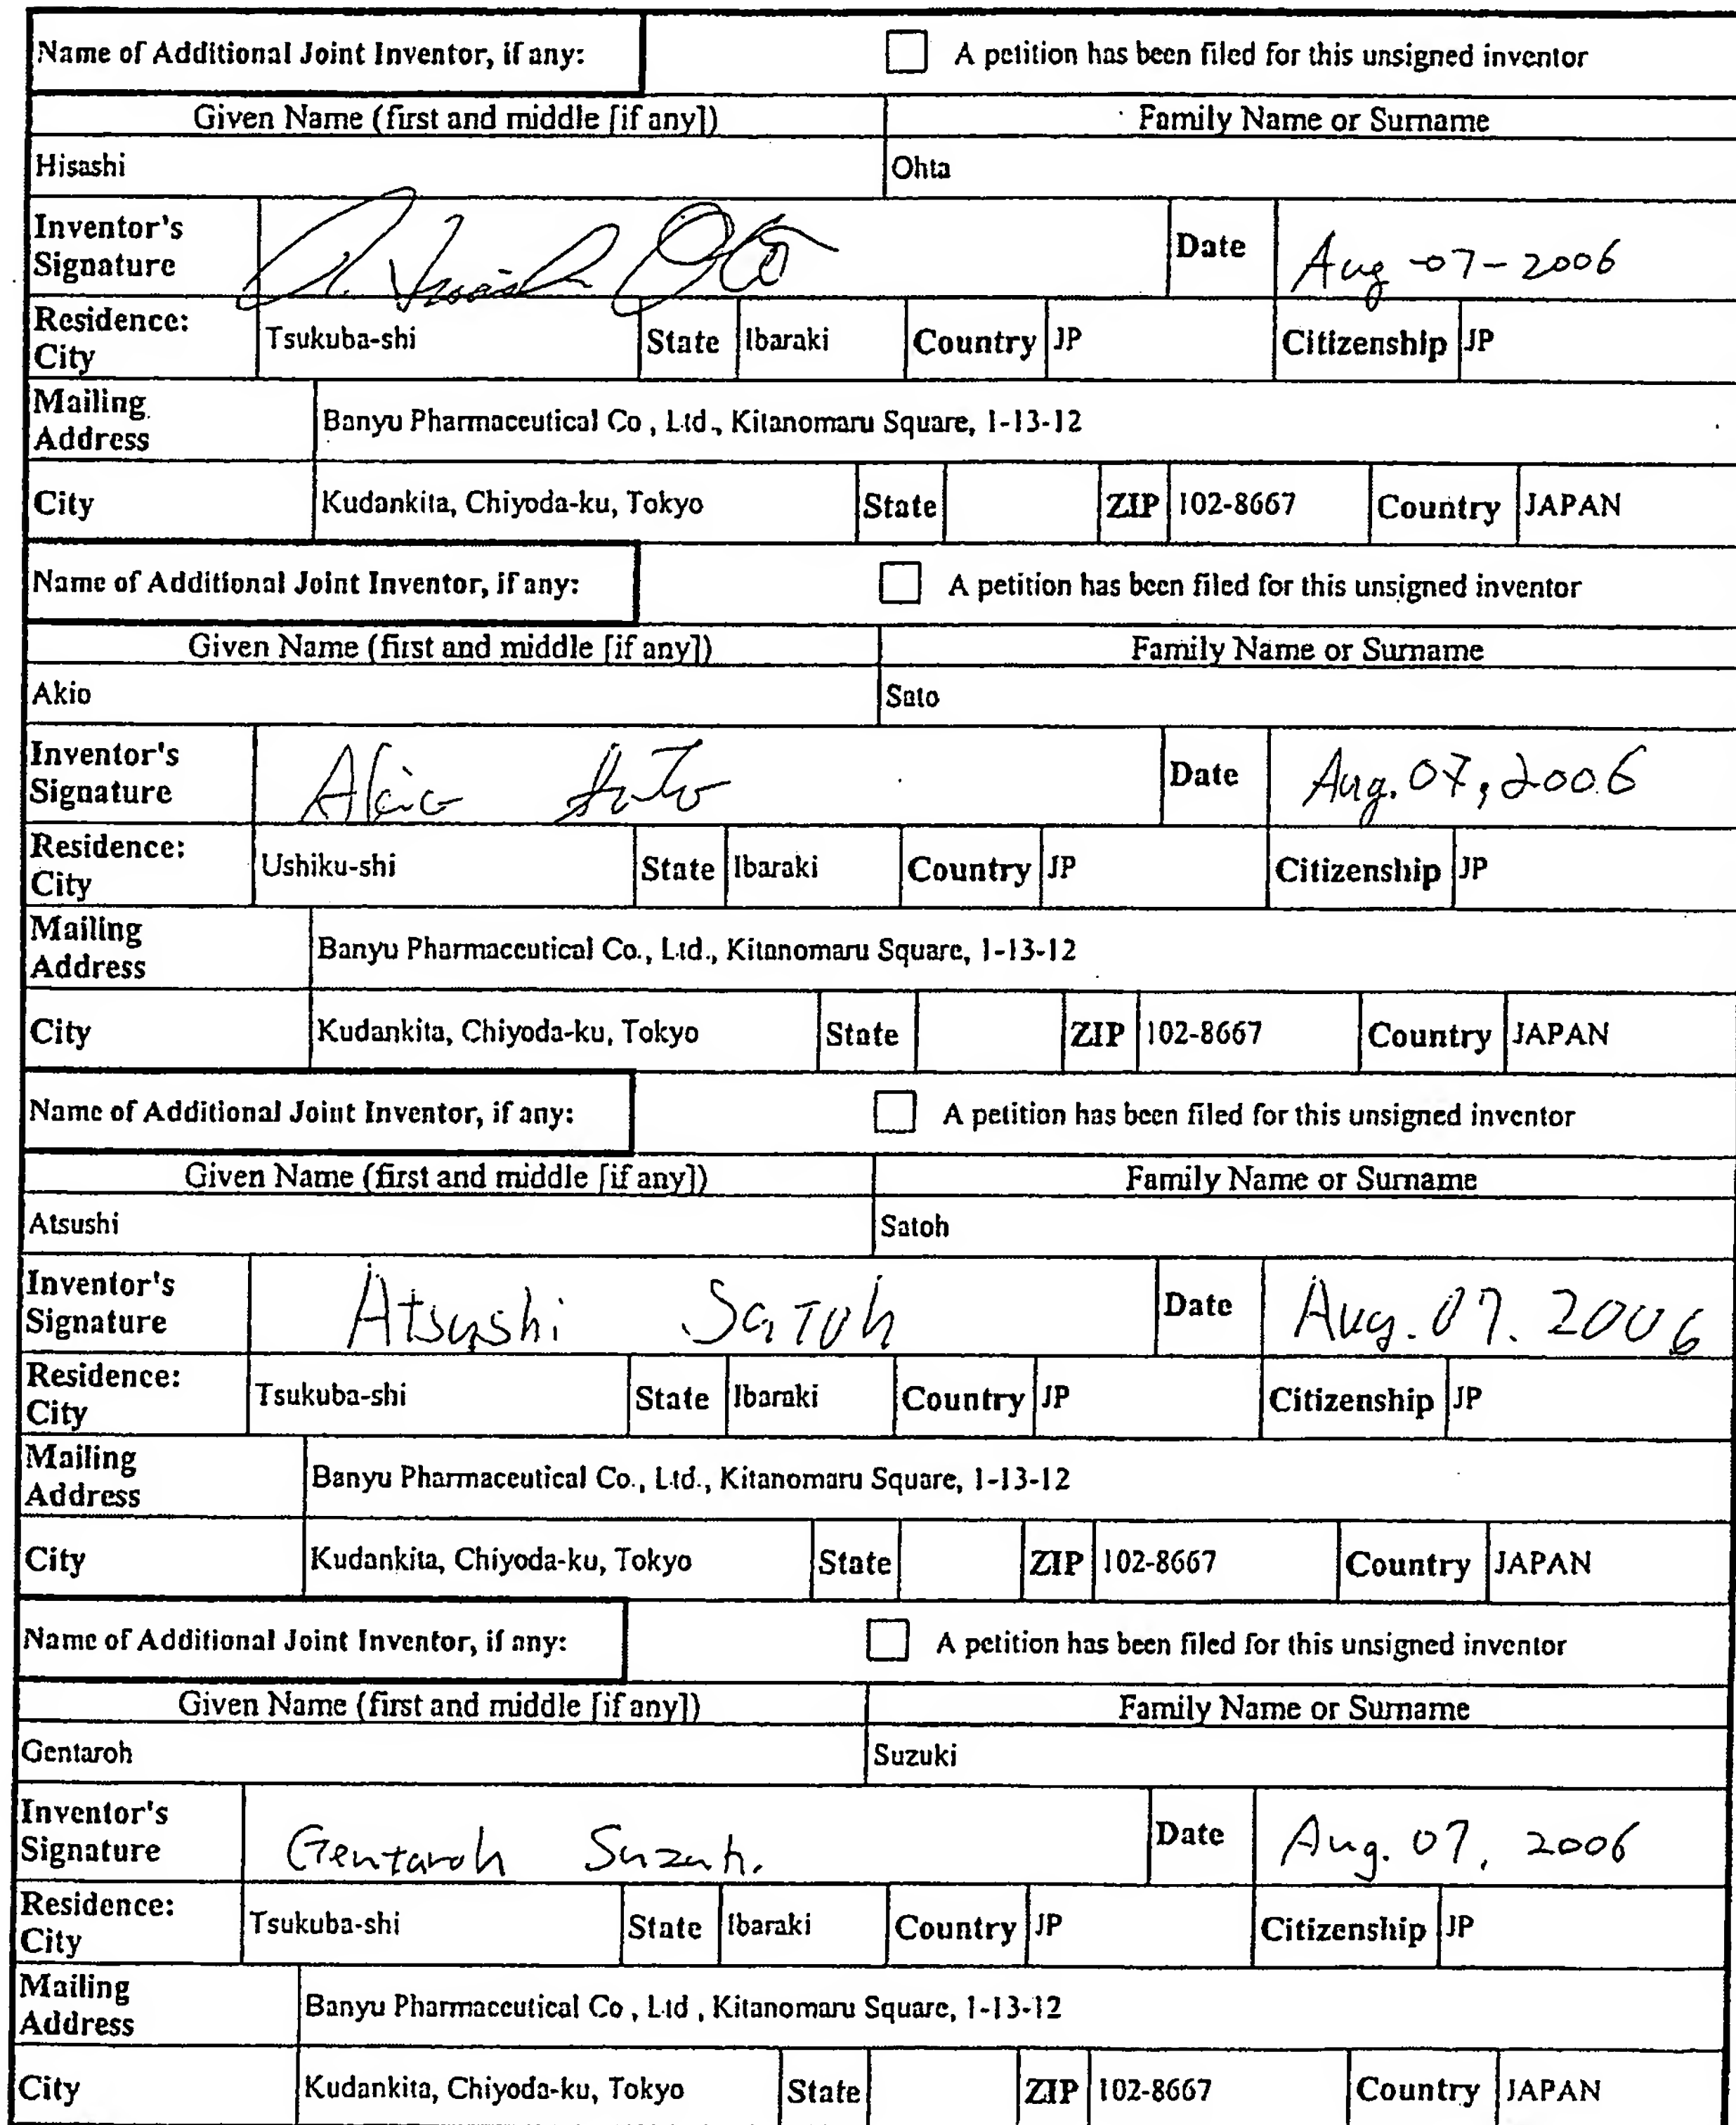 Name of Additional Joint Inventor, if any: A petition has been filed for this unsigned inventor
Given Name (first and middle [if any]) Family Name or Surname
Hisashi Ohta
Inventor's Signature Date Aug-07-2006
Residence: City Tsukuba-shi State Ibaraki Country JP Citizenship JP
Mailing Address Banyu Pharmaceutical Co., Ltd., Kitanomaru Square, 1-13-12
City Kudankita, Chiyoda-ku, Tokyo State ZIP 102-8667 Country JAPAN
Name of Additional Joint Inventor, if any: A petition has been filed for this unsigned inventor
Given Name (first and middle [if any]) Family Name or Surname
Akio Sato
Inventor's Signature Akio Sato Date Aug. 07, 2006
Residence: City Ushiku-shi State Ibaraki Country JP Citizenship JP
Mailing Address Banyu Pharmaceutical Co., Ltd., Kitanomaru Square, 1-13-12
City Kudankita, Chiyoda-ku, Tokyo State ZIP 102-8667 Country JAPAN
Name of Additional Joint Inventor, if any: A petition has been filed for this unsigned inventor
Given Name (first and middle [if any]) Family Name or Surname
Atsushi Satoh
Inventor's Signature Atsushi Satoh Date Aug. 07. 2006
Residence: City Tsukuba-shi State Ibaraki Country JP Citizenship JP
Mailing Address Banyu Pharmaceutical Co., Ltd., Kitanomaru Square, 1-13-12
City Kudankita, Chiyoda-ku, Tokyo State ZIP 102-8667 Country JAPAN
Name of Additional Joint Inventor, if any: A petition has been filed for this unsigned inventor
Given Name (first and middle [if any]) Family Name or Surname
Gentaroh Suzuki
Inventor's Signature Gentaroh Suzuki Date Aug. 07, 2006
Residence: City Tsukuba-shi State Ibaraki Country JP Citizenship JP
Mailing Address Banyu Pharmaceutical Co., Ltd., Kitanomaru Square, 1-13-12
City Kudankita, Chiyoda-ku, Tokyo State ZIP 102-8667 Country JAPAN